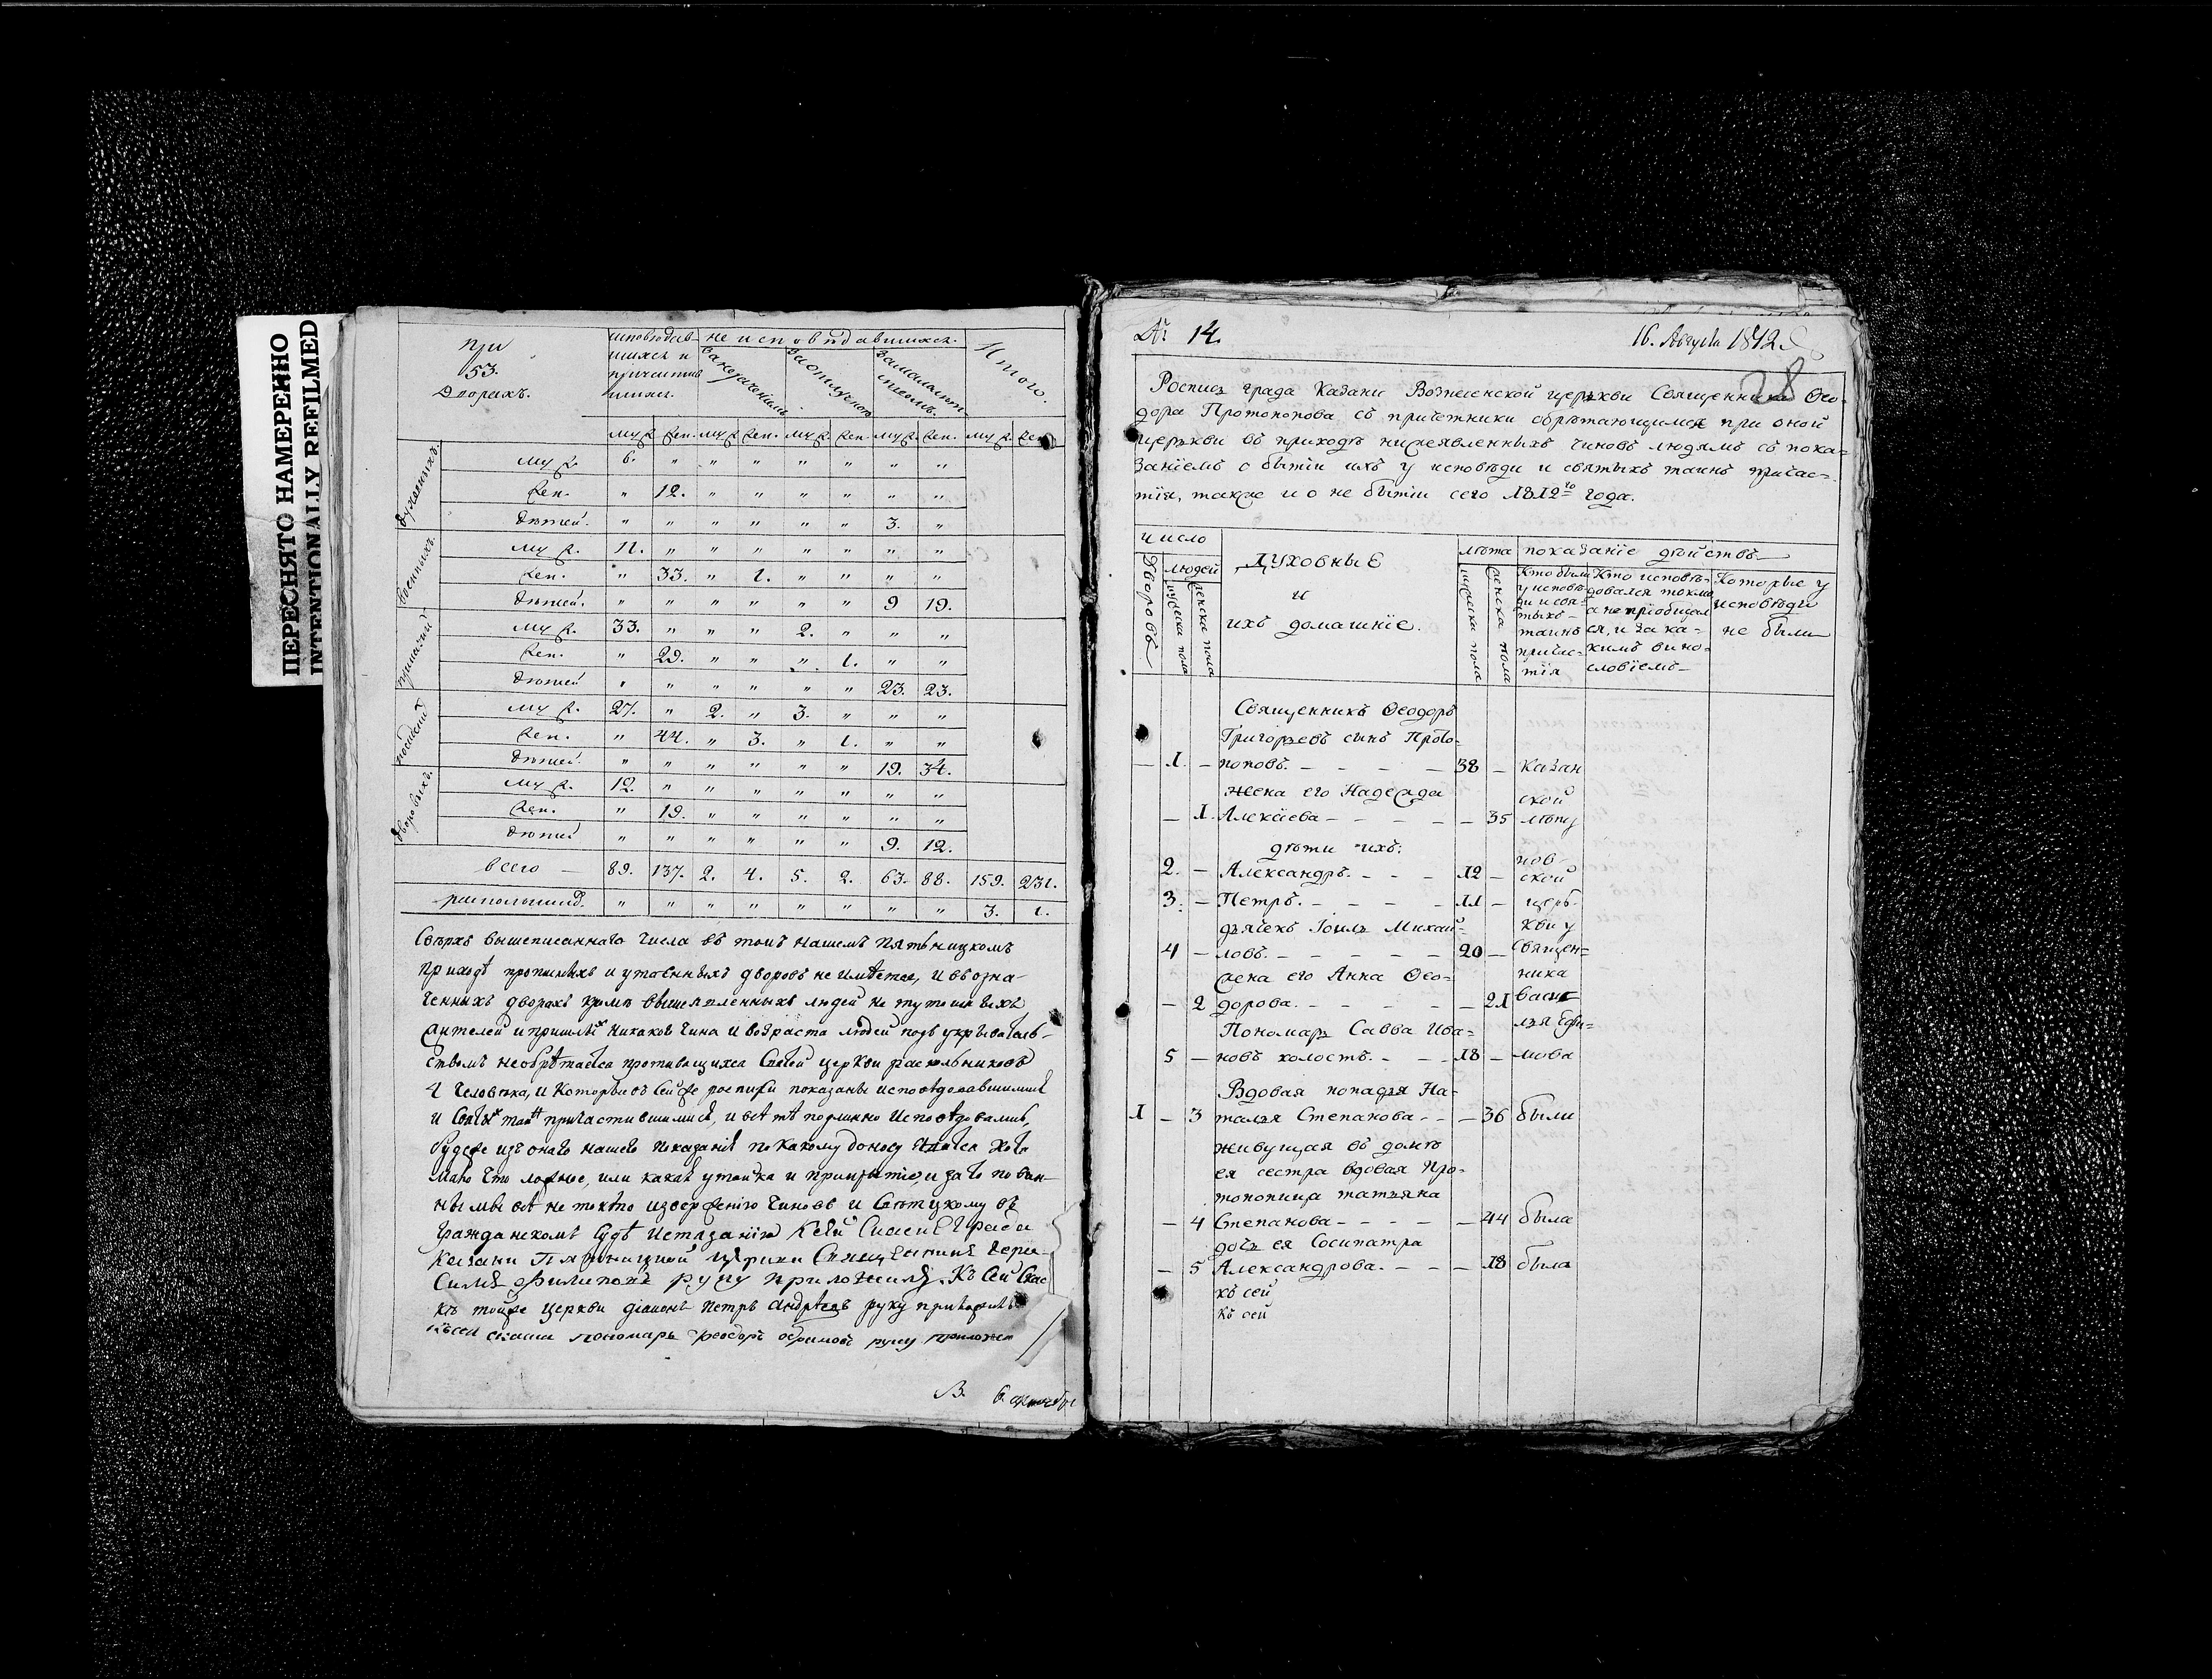 ПЕРЕСНЯТО НАМЕРЕННО
INTENTIONALLY REFILMED
при
53.
дворахъ.
исповѣдав-
шихся и
причастив
шихся.
не исповѣдавшихся.
Итого.
муж. жен. муж. жен. муж. жен. муж. жен. муж. жен.
духовныхъ.
муж. 6. " " " " " " "
жен. " 12. " " " " " "
дѣтей. " " " " " " 3. "
военныхъ.
муж. 11. " " " " " " "
жен. " 33. " 1. " " " "
дѣтей. " " " " " " 9 19.
муж. 33. " " " 2. " " "
жен. " 29. " " " 1. " "
дѣтей " " " " " " 23. 23.
муж. 27. " 2. " 3. " " "
жен. " 44. " 3. " 1. " "
дѣтей. " " " " " " 19. 34.
дворовыхъ.
муж. 12. " " " " " " "
жен. " 19. " " " " " "
дѣтей " " " " " " 9. 12.
всего — 89. 137. 2. 4. 5. 2. 63. 88. 159. 231.
" " " " " " " " 3. 1.
Сверхъ вышеписаннаго числа въ томъ нашемъ Пятницкомъ
приходѣ прописныхъ и утаенныхъ дворовъ не имѣется, и въ озна-
ченныхъ дворахъ кромѣ вышеявленныхъ людей не тутошныхъ
жителей и пришлыхъ никакова чина и возраста людей подъ укрыватель-
ствомъ необрѣтается противящихся Святей церкви раскольниковъ
4 человѣка, и которые въ сей же росписи показаны исповѣдовавшимися
и Святыхъ таинъ причастившимися, и всѣ тѣ подлинно исповѣдовались,
будеже изъ онаго нашего показанія по какому доносу явится хотя
мало что ложное, или какая утайка и прикрытіе, и за то повин-
ны мы всѣ не токмо изверженію чиновъ и Свѣтскому въ
гражданскомъ Судѣ истязанію Къ сей Скаскѣ Града
Казани Пятницкой церкви Священникъ
Филиповъ руку приложилъ. Къ сей Скас
къ тойже церкви діаконъ Петръ Андрѣевъ руку приложилъ
къ сей скаски пономарь Феодоръ Ефимовъ руку приложил
№ 14.
16. Августа 1812.
28
Роспись града Казани Вознесенской церькви Священника Ѳео-
дора Протопопова съ причетники обрѣтающимся при оной
церькви въ приходѣ нижеявленныхъ чиновъ людямъ съ пока-
заніемъ о бытіи ихъ у исповѣди и святыхъ таинъ причас-
тія, также и о не бытіи сего 1812го года.
число
Дворовъ
людей
мужеска пола
женска пола
духовные
и
ихъ домашніе.
лѣта
мужеска пола
женска пола
показаніе дѣйствъ
Кто были
у исповѣ-
ди и свя-
тыхъ
таинъ
причас-
тія
Кто исповѣ-
довался токмо
а не пріобщал
ся, и за ка-
кимъ вино-
словіемъ
Которые у
исповѣди
не были
Священникъ Ѳеодоръ
Григорьевъ сынъ Прото-
— 1. — поповъ. — — — — 38 — Казан
жена его Надежда ской
— 1. Алексіева — — — — — 35
дѣти ихъ:
2. — Александръ. — — — 12 — ской
3. — Петръ. — — — — 11 — церь-
дьячекъ Іоиль Михай- кви у
4 — ловъ. — — — — — 20 — Священ=
жена его Анна Ѳео= ника
— 2 дорова. — — — — — 21 Васи
Пономарь Савва Ива= лья Ефи=
5 — новъ холостъ. — — 18 — мова
Вдовая попадья На-
1 — 3 талья Степанова — — — 36 были
живущая въ домѣ
ея сестра вдовая Про-
топопица татьяна
— 4 Степанова — — — — — 44 была
дочь ея Сосипатра
— 5 Александрова. — — — — 18 была
къ сей
къ сей